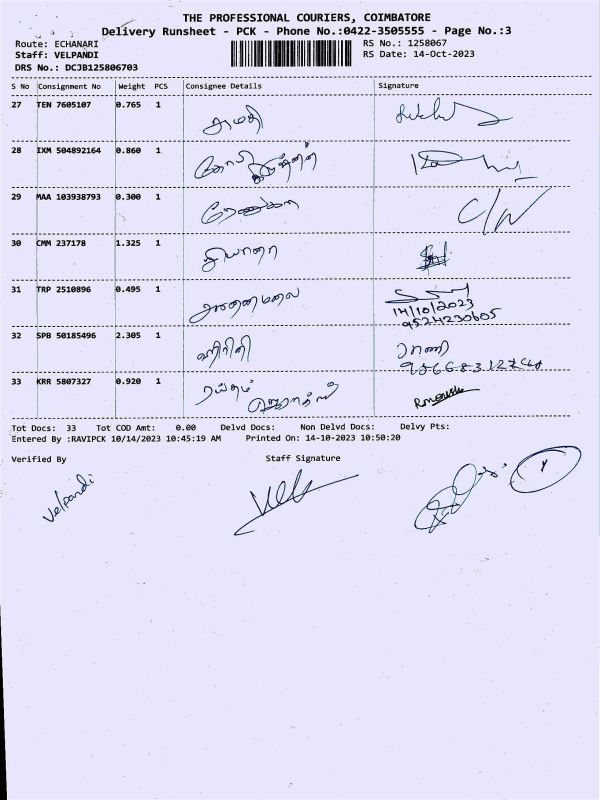 THE PROFESSIONAL COURIERS, COIMBATORE
Delivery Runsheet - PCK - Phone No.:0422-3505555 - Page No.:3
Route: ECHANARI
RS No.: 1258067
Staff: VELPANDI
RS Date: 14-Oct-2023
DRS No.: DCJB125806703
S No Consignment No Weight PCS Consignee Details Signature
27 TEN 7605107 0.765 1 அமதி
28 IXM 504892164 0.860 1
29 MAA 103938793 0.300 1 ரேணுகா C/N
30 CMM 237178 1.325 1
31 TRP 2510896 0.495 1 அண்ணாமலை
14/10/2023
9524230605
32 SPB 50185496 2.305 1 ஹரிணி ராணி
33 KRR 5807327 0.920 1
Tot Docs: 33 Tot COD Amt: 0.00 Delvd Docs: Non Delvd Docs: Delvy Pts:
Entered By :RAVIPCK 10/14/2023 10:45:19 AM Printed On: 14-10-2023 10:50:20
Verified By Staff Signature
Velpandi